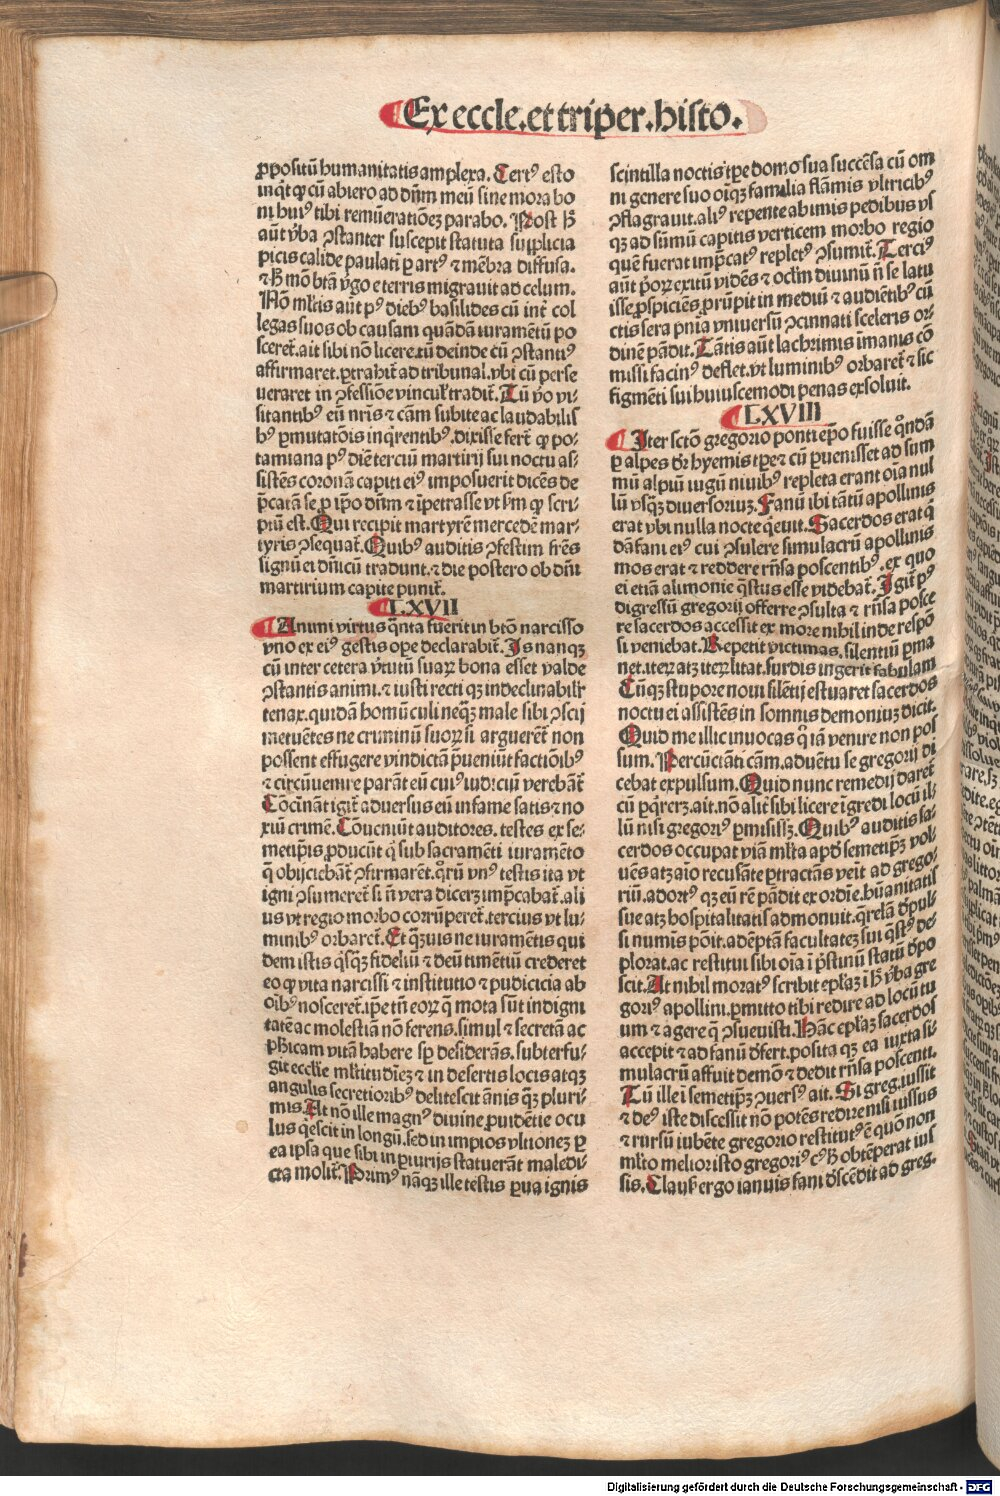 Ex eccle. et triper. histo.
ꝓpositū humanitatis amplexa. Certꝰ esto
inq̄t ꝙ cū abiero ad dn̄m meū sine mora bo
ni huiꝰ tibi remūeratiōeꝫ parabo. Post h̄
aūt v̄ba ꝯstanter suscepit statuta supplicia
picis calide paulatī ꝑ artꝰ ⁊ mēbra diffusa.
⁊ h̄ mō bt̄a v̄go e terris migrauit ad celum.
Nō ml̄tis aūt pꝰ diebꝰ basilides cū int̄ col
legas suos ob causam quādā iuramētū po
sceret̄. ait sibi nō licere. tū deinde cū ꝯstantiꝰ
affirmaret. ꝑtrahit̄ ad tribunal. vbi cū perse
ueraret in ꝯfessiōe vinculꝭ tradit̄. Tū ꝟo vi-
sitantibꝰ eū nr̄is ⁊ cām subite ac laudabilis
bꝰ ꝑmutatōis inq̄rentibꝰ. dixisse fert̄ ꝙ po-
tamiana pꝰ diē terciū martirij sui noctu as-
sistēs coronā capiti eiꝰ imposuerit dicēs de
p̄catā se ꝓ ip̄o dn̄m ⁊ īpetrasse vt sm̄ ꝙ scri-
ptū est. Qui recipit martyrē mercedē mar-
tyris ꝯsequat̄. Quibꝰ auditis ꝯfestim frēs
signū ei dn̄icū tradunt. ⁊ die postero ob dn̄i
martirium capite punit̄.
LXVII
Animi virtus q̄nta fuerit in bt̄o narcisso
vno ex eiꝰ gestis ope declarabit̄. Is nanqꝫ
cū inter cetera v̄tutū suaꝝ bona esset valde
ꝯstantis animi. ⁊ iusti recti qꝫ indeclinabilr̄
tenax. quidā homūculi neqꝫ male sibi ꝯscij
metuētes ne criminū suoꝝ si arguerēt̄ non
possent effugere vindictā p̄ueniūt factiōibꝰ
⁊ circūuenire parāt eū cuiꝰ iudiciū verebāt̄
Cōcinnāt igit̄ aduersus eū infame satis ⁊ no
xiū crimē. Cōueniūt auditores. testes ex se-
metip̄is ꝓducūt q̄ sub sacramēti iuramēto
q̄ obijciebāt̄ ꝯfirmarēt. q̄ꝝ vnꝰ testis ita vt
igni ꝯsumeret̄ si n̄ vera dicerꝫ imp̄cabat̄. ali
us vt regio morbo corrūperet̄. tercius vt lu-
minibꝰ orbaret̄. Et q̄ꝫuis ne iuramētis qui
dem istis q̄sqꝫ fideliū ⁊ deū timētiū crederet
eo ꝙ vita narcissi ⁊ institutio ⁊ pudicicia ab
oībꝰ nosceret̄. ip̄e tn̄ eoꝝ q̄ mota sūt indigni
tatē ac molestiā nō ferens. simul ⁊ secretā ac
ph̄icam vitā habere sp̄ desiderās. subterfu-
git eccl̄ie ml̄titudīeꝫ ⁊ in desertis locis atqꝫ
angulis secretioribꝰ delitescit ānis qꝫ pluri-
mis. At nō ille magnꝰ diuine ꝓuidētie ocu
lus q̄escit in longū. sed in impios vltionez ꝑ
ea ipsa que sibi in ꝑiurijs statuerāt maledi-
cta molit̄. Primꝰ nāqꝫ ille testis ꝑua ignis
scintilla noctis tꝑe domꝰ sua succēsa cū om
ni genere suo oīqꝫ familia flāmis vltricibꝰ
ꝯflagrauit. aliꝰ repente ab imis pedibus vs
qꝫ ad sūmū capitis verticem morbo regio
quē fuerat imp̄catꝰ repletꝰ ꝯsumit̄. Terciꝰ
aūt p̄oꝝ exitū vidēs ⁊ ocl̄m diuinū n̄ se latu
isse ꝓspiciēs ꝓrūpit in mediū ⁊ audiētibꝰ cū
ctis sera pn̄ia vniuersū ꝯcinnati sceleris or-
dinē pādit. Tātis aūt lachrimis imanis cō
missi facinꝰ deflet. vt luminibꝰ orbaret̄ ⁊ sic
figmēti sui huiuscemodi penas exsoluit.
LXVIII
Iter sct̄o gregorio ponti ep̄o fuisse q̄ndā
ꝑ alpes dr̄ hyemis tꝑe ⁊ cū ꝑuenisset ad sum
mū alpiū iugū niuibꝰ repleta erant oīa nul
lū vsqꝫ diuersoriuꝫ. Fanū ibi tātū apollinis
erat vbi nulla nocte q̄euit. Sacerdos erat q̄
dā fani eiꝰ cui ꝯsulere simulacrū apollinis
mos erat ⁊ reddere rn̄sa poscentibꝰ. ex quo
ei etiā alimonie q̄stus esse videbat̄. Igit̄ pꝰ
digressū gregorij offerre ꝯsulta ⁊ rn̄sa posce
re sacerdos accessit ex more nihil inde respō
si veniebat. Repetit victimas. silentiū ꝑma
net. iterat qꝫ iteꝝ litat. surdis ingerit fabulam
Cūqꝫ stupore noui silētij estuaret sacerdos
noctu ei assistēs in somnis demoniuꝫ dicit.
Quid me illic inuocas q̄ iā venire non pos
sum. Percūctāti cām. aduētu se gregorij di
cebat expulsum. Quid nunc remedij daret̄
cū ꝑq̄rerꝫ. ait. nō alit̄ sibi licere īgredi locū il-
lū nisi gregoriꝰ ꝑmisissꝫ. Quibꝰ auditis sa-
cerdos occupat viā ml̄ta apd̄ semetip̄ꝫ vol
uēs atqꝫ aio recusāte ꝑtractās venit ad grego-
riū. adortꝰ qꝫ eū rē pādit ex ordīe. hūanitatis
sue atqꝫ hospitalitatis admonuit. q̄relā d̄pul
si numis pōit. adēptā facultateꝫ sui q̄stꝰ de-
plorat. ac restitui sibi oīa ī p̄stinū statū d̄po
scit. At nihil moratꝰ scribit epl̄aꝫ ī h̄ v̄ba gre
goriꝰ apollini. ꝑmitto tibi redire ad locū tu
um ⁊ agere q̄ ꝯsueuisti. Hāc epl̄aꝫ sacerdos
accepit ⁊ ad fanū d̄fert. posita qꝫ ea iuxta si-
mulacrū affuit demō ⁊ dedit rn̄sa poscenti.
Tū ille ī semetip̄ꝫ ꝯuersꝰ ait. Si greg. iussit
⁊ deꝰ iste discessit nō potēs redire nisi iussus
⁊ rursū iubēte gregorio restitutꝰ ē quō non
ml̄to melior isto gregoriꝰ cꝰ h̄ obtēperat ius
sis. Clausꝭ ergo ianuis fani d̄scēdit ad greg.
Digitalisierung gefördert durch die Deutsche Forschungsgemeinschaft - DFG